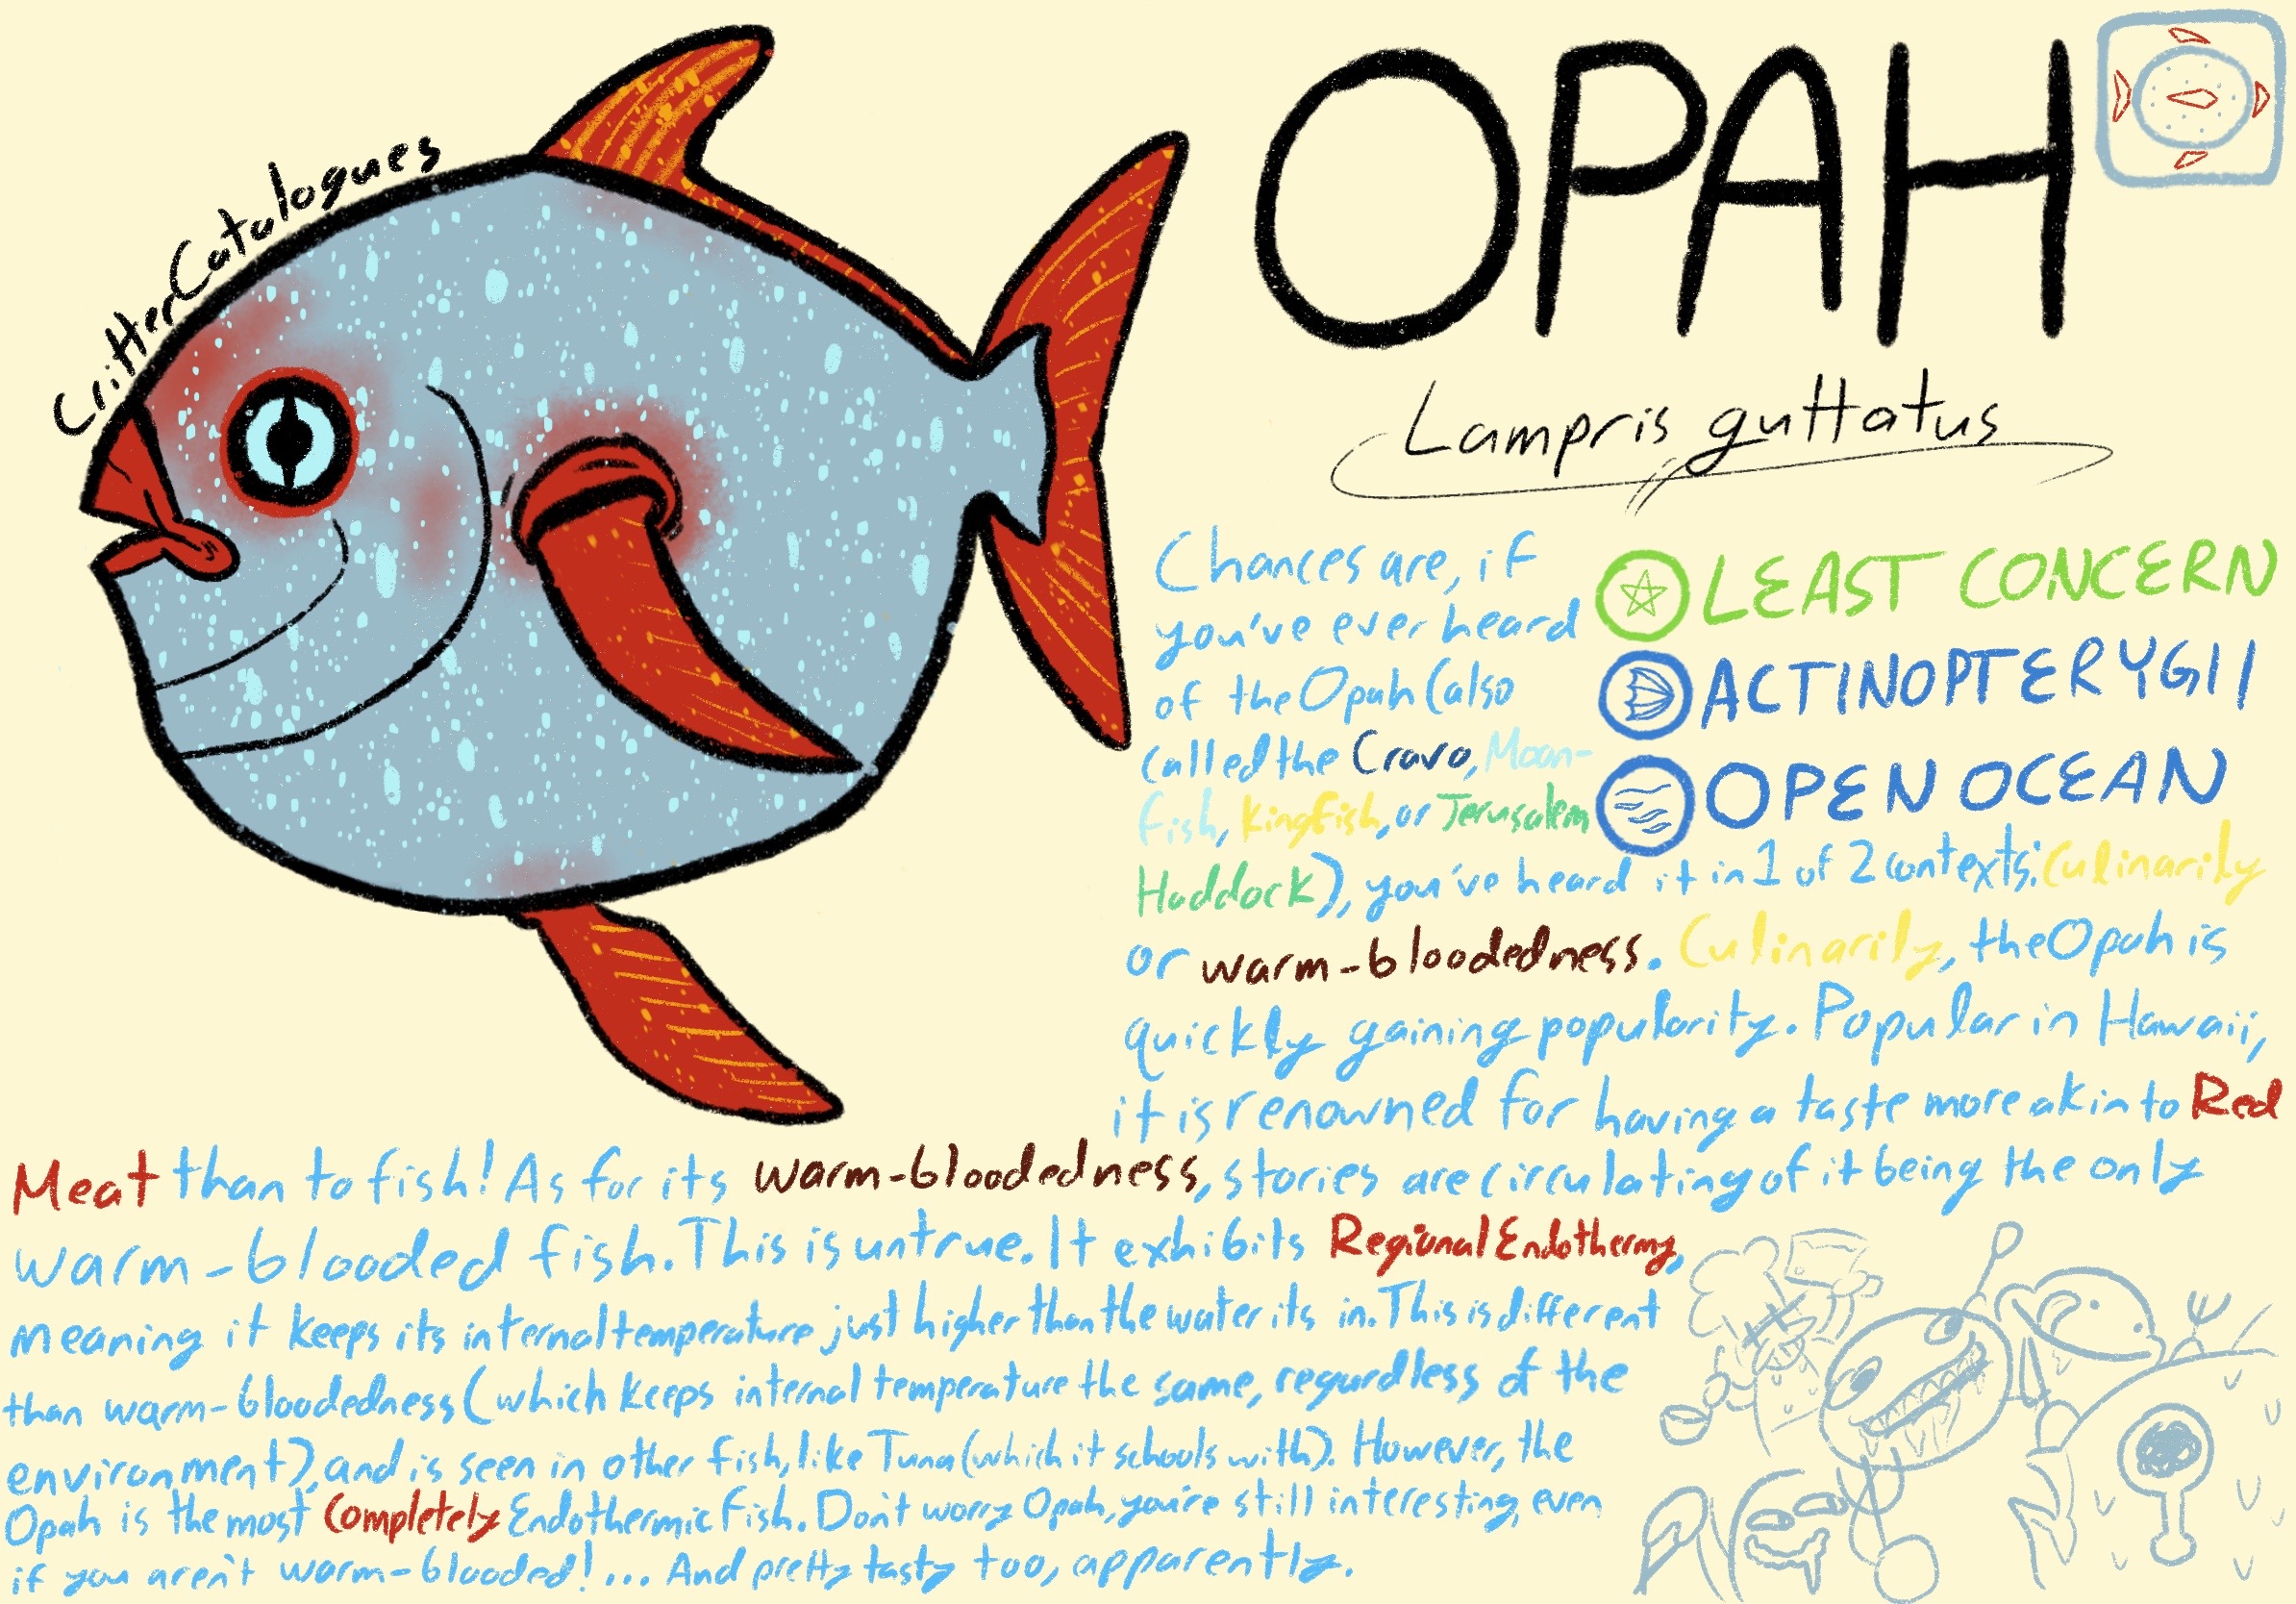 CritterCatalogues
OPAH
Lampris guttatus
LEAST CONCERN
ACTINOPTERYGII
OPEN OCEAN
Chances are, if
you've ever heard
of the Opah (also
called the Cravo, Moon-
fish, Kingfish, or Jerusalem
Haddock), you've heard it in 1 of 2 contexts: Culinarily
or warm-bloodedness. Culinarily, the Opah is
quickly gaining popularity. Popular in Hawaii,
it is renowned for having a taste more akin to Red
Meat than to fish! As for its warm-bloodedness, stories are circulating of it being the only
warm-blooded fish. This is untrue. It exhibits Regional Endothermy,
meaning it keeps its internal temperature just higher than the water its in. This is different
than warm-bloodedness (which keeps internal temperature the same, regardless of the
environment), and is seen in other fish, like Tuna (which it schools with). However, the
Opah is the most Completely Endothermic Fish. Don't worry Opah, you're still interesting, even
if you aren't warm-blooded!... And pretty tasty too, apparently.